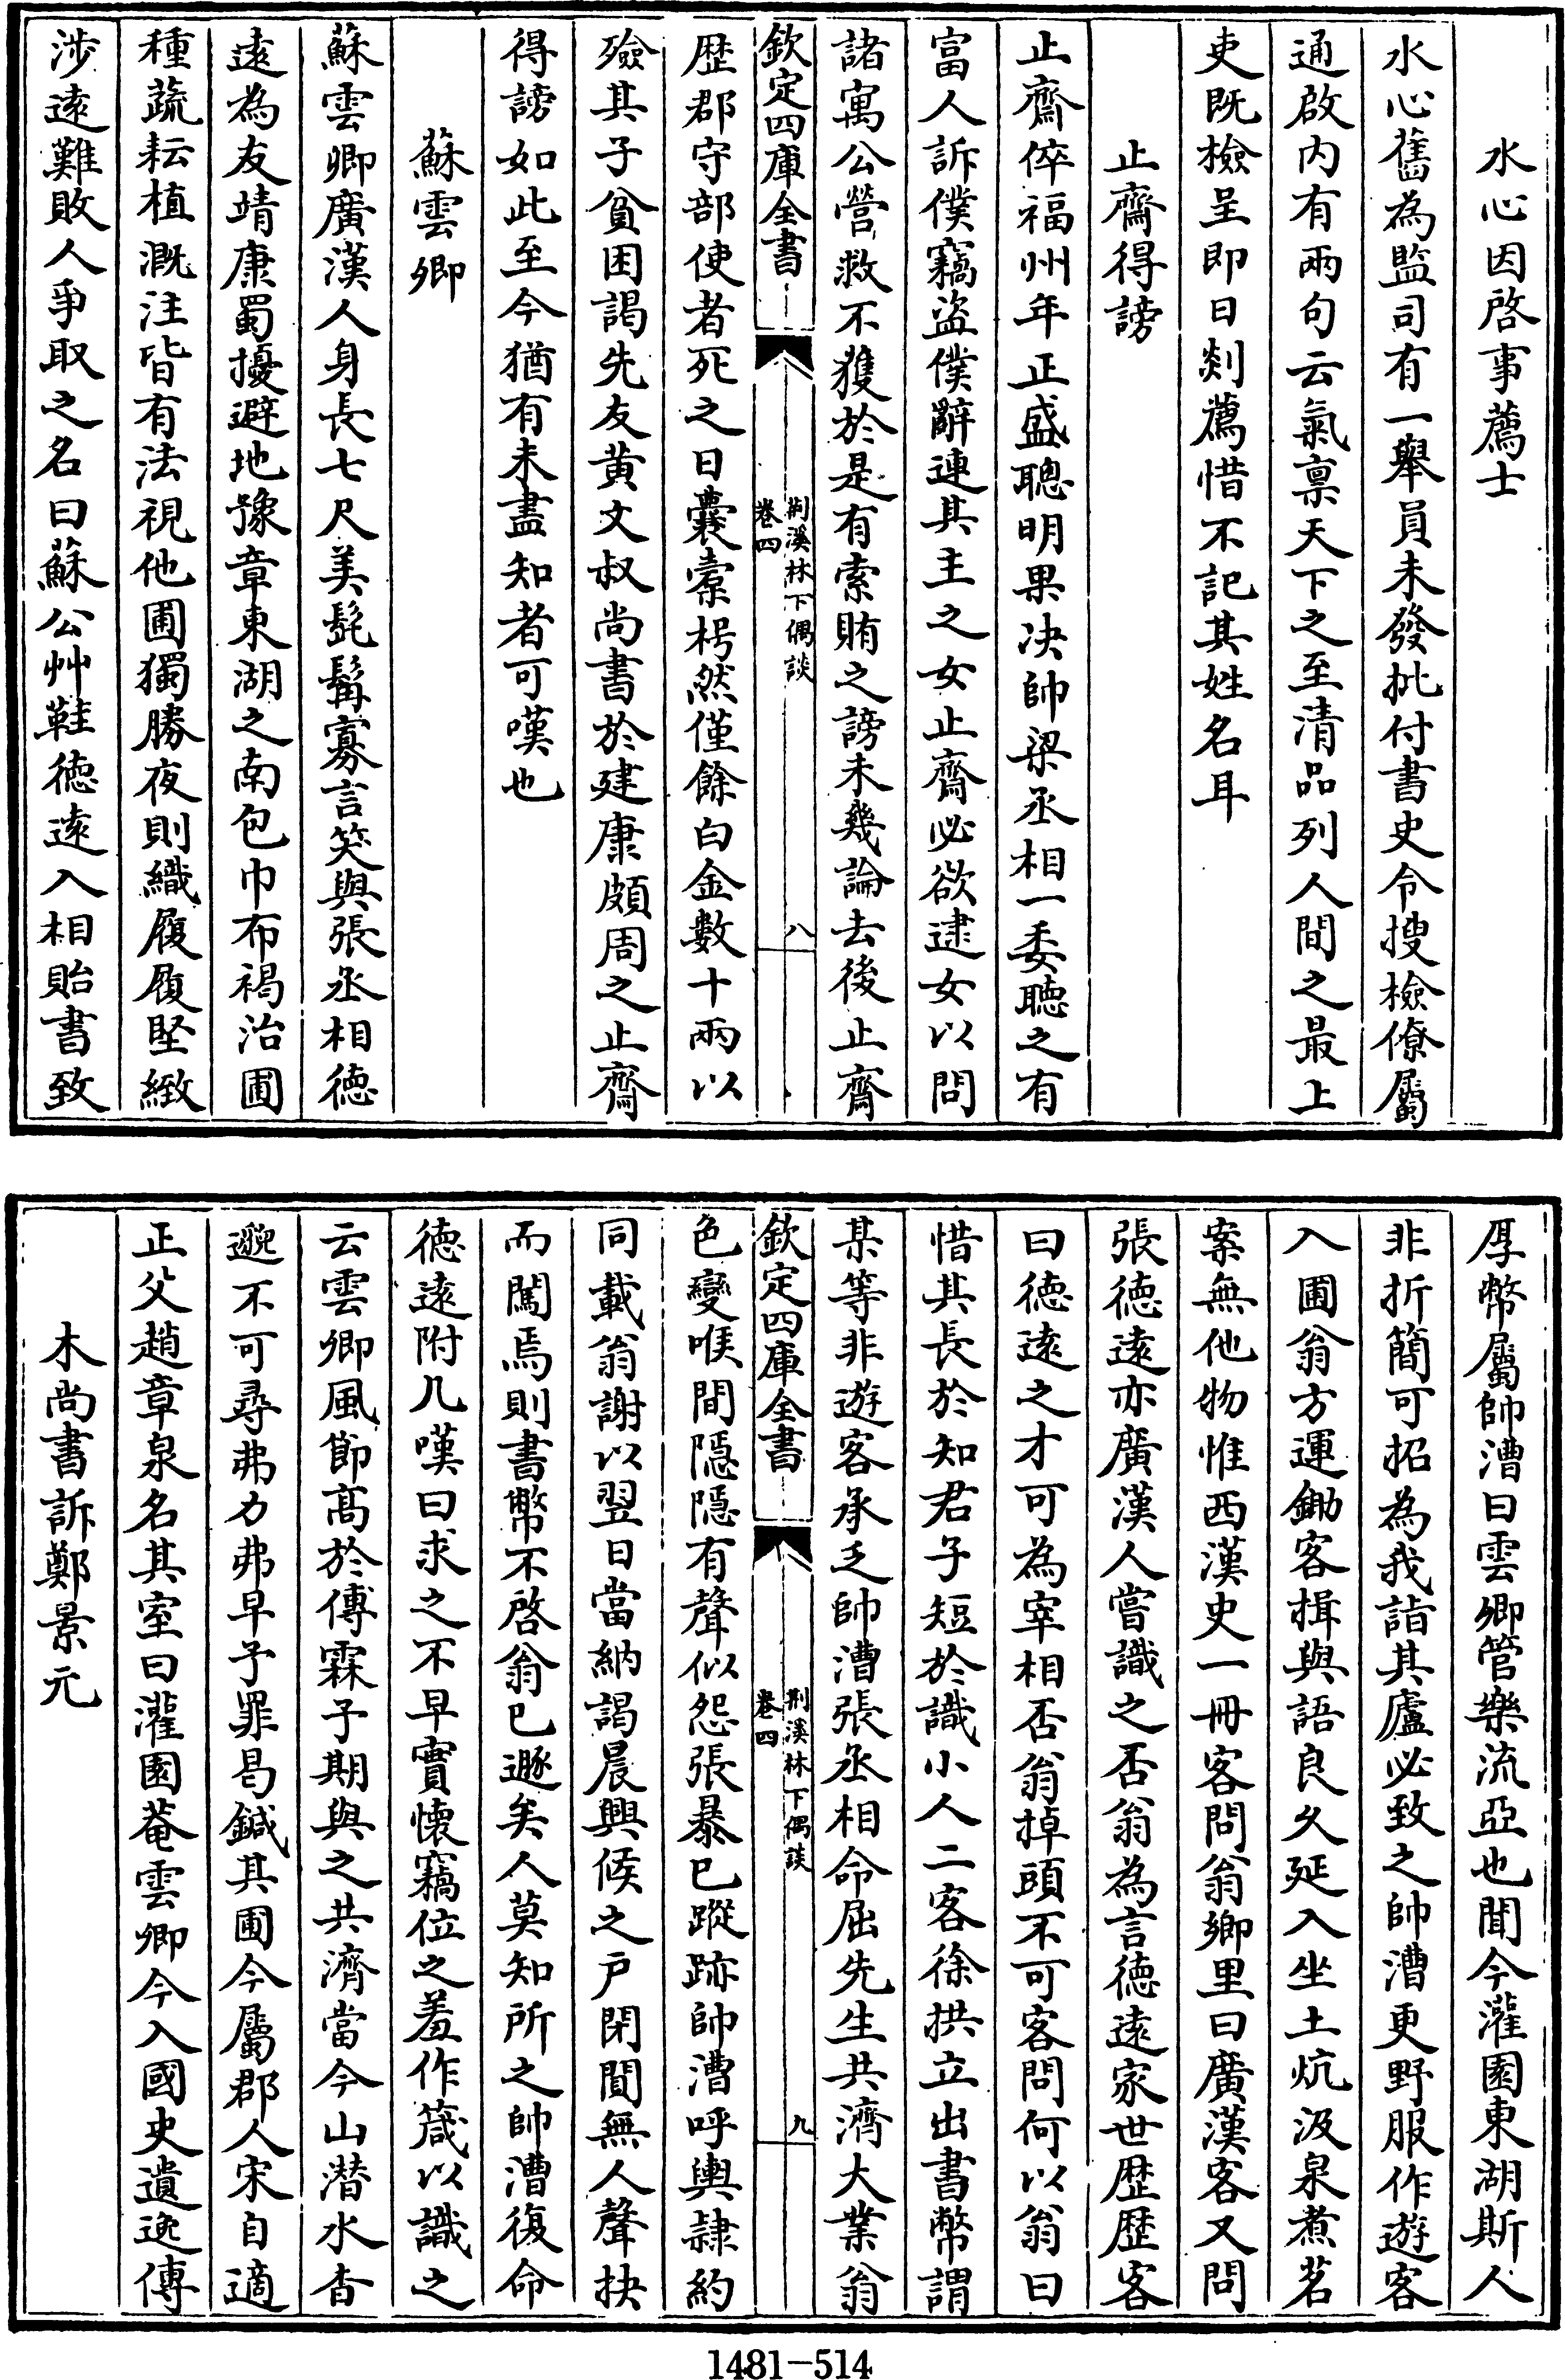 水心因啓事薦士
水心舊為監司有一舉員未發批付書史令搜檢僚屬
通啟内有兩句云氣禀天下之至清品列人間之最上
吏既檢呈即日剡薦惜不記其姓名耳
止齋得謗
止齋倅福州年正盛聰明果决帥梁丞相一委聽之有
富人訴僕竊盜僕辭連其主之女止齋必欲逮女以問
諸寓公營救不獲於是有索賄之謗未幾論去後止齋
欽定四庫全書
荆溪林下偶談
卷四
八
歴郡守部使者死之日囊槖枵然僅餘白金數十兩以
殮其子貧困謁先友黄文叔尚書於建康頗周之止齋
得謗如此至今猶有未盡知者可嘆也
蘇雲卿
蘇雲卿廣漢人身長七尺美髭髯寡言笑與張丞相徳
逺為友靖康蜀擾避地豫章東湖之南包巾布褐治圃
種蔬耘植溉注皆有法視他圃獨勝夜則織履履堅緻
渉逺難敗人爭取之名曰蘇公艸鞋徳逺入相貽書致
厚幣屬帥漕曰雲卿管樂流亞也聞今灌園東湖斯人
非折簡可招為我詣其廬必致之帥漕更野服作遊客
入圃翁方運鋤客揖與語良久延入坐土炕汲泉煮茗
案無他物惟西漢史一冊客問翁鄉里曰廣漢客又問
張徳逺亦廣漢人嘗識之否翁為言徳逺家世歴歴客
曰徳逺之才可為宰相否翁掉頭不可客問何以翁曰
惜其長於知君子短於識小人二客徐拱立出書幣謂
某等非遊客承乏帥漕張丞相命屈先生共濟大業翁
欽定四庫全書
荆溪林下偶談
卷四
九
色變喉間隠隠有聲似怨張暴已蹤跡帥漕呼輿隷約
同載翁謝以翌日當納謁晨興候之戸閉闃無人聲抉
而闖焉則書幣不啓翁已遯矣人莫知所之帥漕復命
徳逺附几嘆曰求之不早實懷竊位之羞作箴以識之
云雲卿風節高於傅霖予期與之共濟當今山潛水杳
邈不可尋弗力弗早予罪曷鍼其圃今屬郡人宋自適
正父趙章泉名其室曰灌園菴雲卿今入國史遺逸傳
木尚書訴鄭景元
1481-514